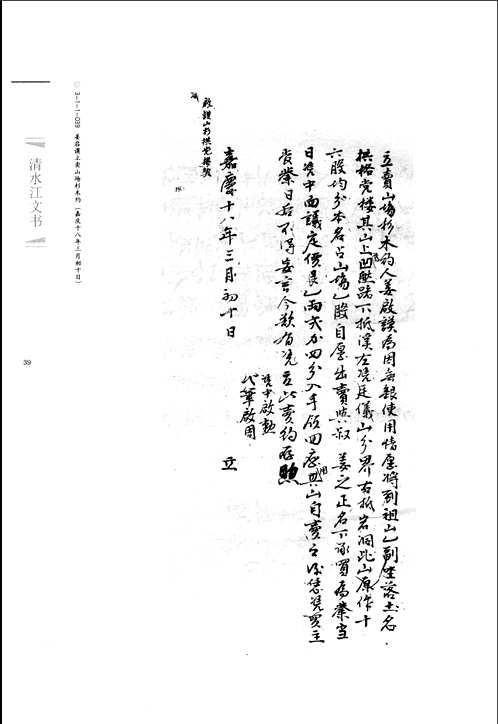 立賣山場杉木約人姜啟謨為因無銀使用情愿將到祖山乙副坐落土名
拱格党楼其山上凹壓路下抵溪左凴廷儀山分界右抵岩洞此山原作十
六股均分本名占山場乙股自愿出賣與叔 姜之正名下承買為業當
日凴中面議定價艮乙兩式分四分入手領回應用其山自賣之後恁凴買主
管業日后不得妄言今欲有凴立此賣約存照
凴中啟勲
代筆啟周
嘉慶十八年三月初十日 立
啟謨山杉拱党楼契
3-1-1-039 姜啟謨立賣山場杉木約(嘉庆十八年三月初十日)
清水江文书
39